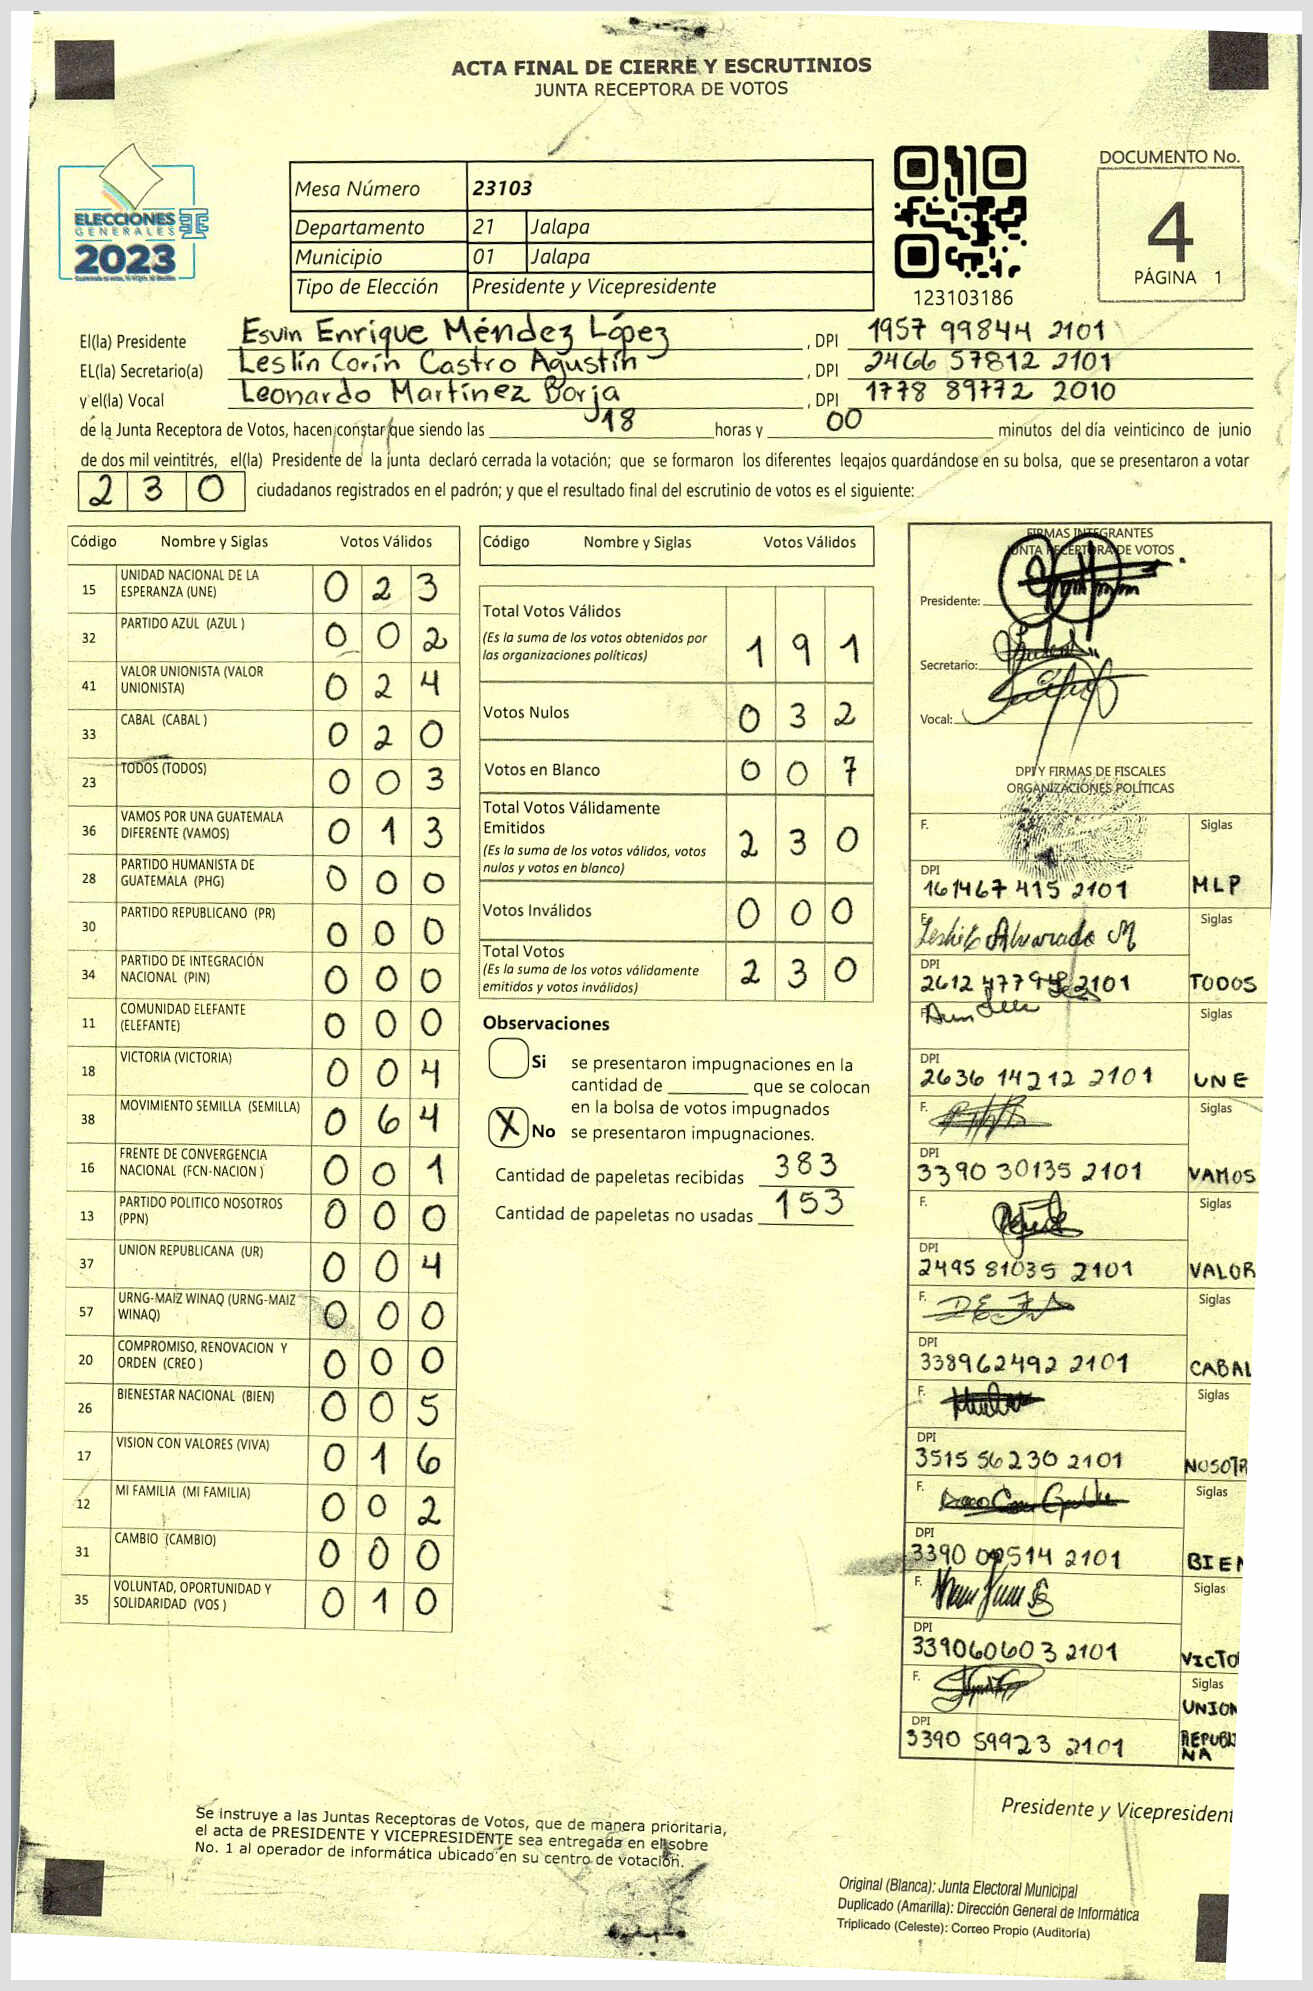 ACTA FINAL DE CIERRE Y ESCRUTINIOS
JUNTA RECEPTORA DE VOTOS
ELECCIONES
GENERALES
2023
Mesa Número 23103
Departamento 21 Jalapa
Municipio 01 Jalapa
Tipo de Elección Presidente y Vicepresidente
123103186
DOCUMENTO No.
4
PÁGINA 1
El(la) Presidente Esvin Enrique Méndez López, DPI 1957 99844 2101
EL(la) Secretario(a) Leslin Corín Castro Agustín, DPI 2466 57812 2101
y el(la) Vocal Leonardo Martínez Borja, DPI 1778 89772 2010
de la Junta Receptora de Votos, hacen constar que siendo las 18 horas y 00 minutos del día veinticinco de junio
de dos mil veintitrés, el(la) Presidente de la junta declaró cerrada la votación; que se formaron los diferentes legajos guardándose en su bolsa, que se presentaron a votar
230 ciudadanos registrados en el padrón; y que el resultado final del escrutinio de votos es el siguiente:
Código Nombre y Siglas Votos Válidos
15 UNIDAD NACIONAL DE LA ESPERANZA (UNE) 0 2 3
32 PARTIDO AZUL (AZUL ) 0 0 2
41 VALOR UNIONISTA (VALOR UNIONISTA) 0 2 4
33 CABAL (CABAL ) 0 2 0
23 TODOS (TODOS) 0 0 3
36 VAMOS POR UNA GUATEMALA DIFERENTE (VAMOS) 0 1 3
28 PARTIDO HUMANISTA DE GUATEMALA (PHG) 0 0 0
30 PARTIDO REPUBLICANO (PR) 0 0 0
34 PARTIDO DE INTEGRACIÓN NACIONAL (PIN) 0 0 0
11 COMUNIDAD ELEFANTE (ELEFANTE) 0 0 0
18 VICTORIA (VICTORIA) 0 0 4
38 MOVIMIENTO SEMILLA (SEMILLA) 0 6 4
16 FRENTE DE CONVERGENCIA NACIONAL (FCN-NACION ) 0 0 1
13 PARTIDO POLITICO NOSOTROS (PPN) 0 0 0
37 UNION REPUBLICANA (UR) 0 0 4
57 URNG-MAIZ WINAQ (URNG-MAIZ WINAQ) 0 0 0
20 COMPROMISO, RENOVACION Y ORDEN (CREO ) 0 0 0
26 BIENESTAR NACIONAL (BIEN) 0 0 5
17 VISION CON VALORES (VIVA) 0 1 6
12 MI FAMILIA (MI FAMILIA) 0 0 2
31 CAMBIO (CAMBIO) 0 0 0
35 VOLUNTAD, OPORTUNIDAD Y SOLIDARIDAD (VOS ) 0 1 0
Código Nombre y Siglas Votos Válidos
Total Votos Válidos
(Es la suma de los votos obtenidos por
las organizaciones políticas) 1 9 1
Votos Nulos 0 3 2
Votos en Blanco 0 0 7
Total Votos Válidamente
Emitidos
(Es la suma de los votos válidos, votos
nulos y votos en blanco) 2 3 0
Votos Inválidos 0 0 0
Total Votos
(Es la suma de los votos válidamente
emitidos y votos inválidos) 2 3 0
Observaciones
Si se presentaron impugnaciones en la
cantidad de ________ que se colocan
en la bolsa de votos impugnados
X No se presentaron impugnaciones.
Cantidad de papeletas recibidas 383
Cantidad de papeletas no usadas 153
FIRMAS INTEGRANTES
JUNTA RECEPTORA DE VOTOS
Presidente:
Secretario:
Vocal:
DPI Y FIRMAS DE FISCALES
ORGANIZACIONES POLÍTICAS
F. Siglas
DPI
161467 415 2101 MLP
F. Alvarado M Siglas
DPI
2612 2101 TODOS
F. Siglas
DPI
2636 14212 2101 UNE
F. Siglas
DPI
3390 30135 2101 VAMOS
F. Siglas
DPI
2495 81035 2101 VALOR
F. Siglas
DPI
338962492 2101 CABAL
F. Siglas
DPI
3515 56230 2101 NOSOTR
F. Siglas
DPI
3390 00514 2101 BIEN
F. Siglas
DPI
339060603 2101 VICTO
F. Siglas
DPI
3390 59923 2101 UNION
REPUBLI
NA
Presidente y Vicepresident
Se instruye a las Juntas Receptoras de Votos, que de manera prioritaria,
el acta de PRESIDENTE Y VICEPRESIDENTE sea entregada en el sobre
No. 1 al operador de informática ubicado en su centro de votación.
Original (Blanca): Junta Electoral Municipal
Duplicado (Amarilla): Dirección General de Informática
Triplicado (Celeste): Correo Propio (Auditoría)